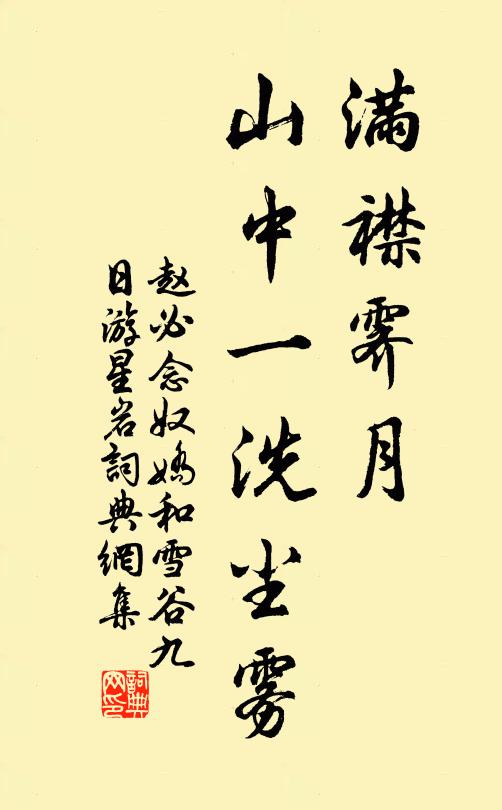 满襟霁月
山中一洗尘雾
赵必念奴娇和雪谷九
日游星岩詞典網集
詞典
网印